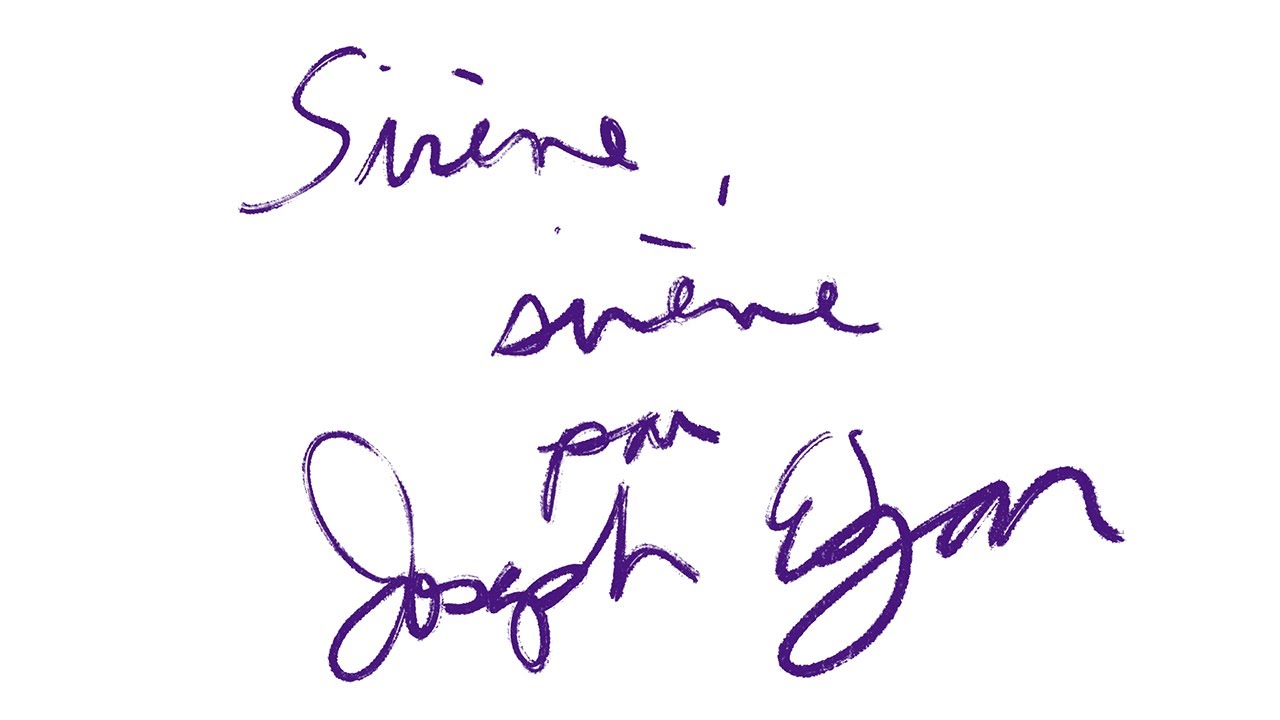 Sirène,
sirène
par
Joseph Egan